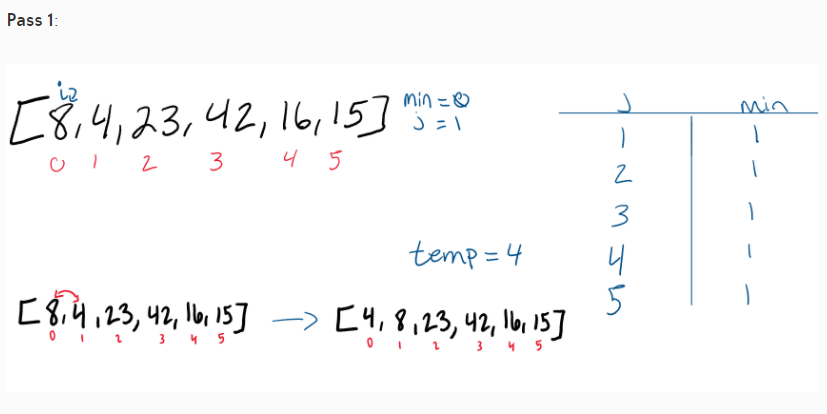 Pass 1:
i
[8,4,23,42,16,15]
0 1 2 3 4 5
min = 0
j = 1
j min
1 1
2 1
3 1
4 1
5 1
temp = 4
[8,4,23,42,16,15] → [4,8,23,42,16,15]
0 1 2 3 4 5 0 1 2 3 4 5